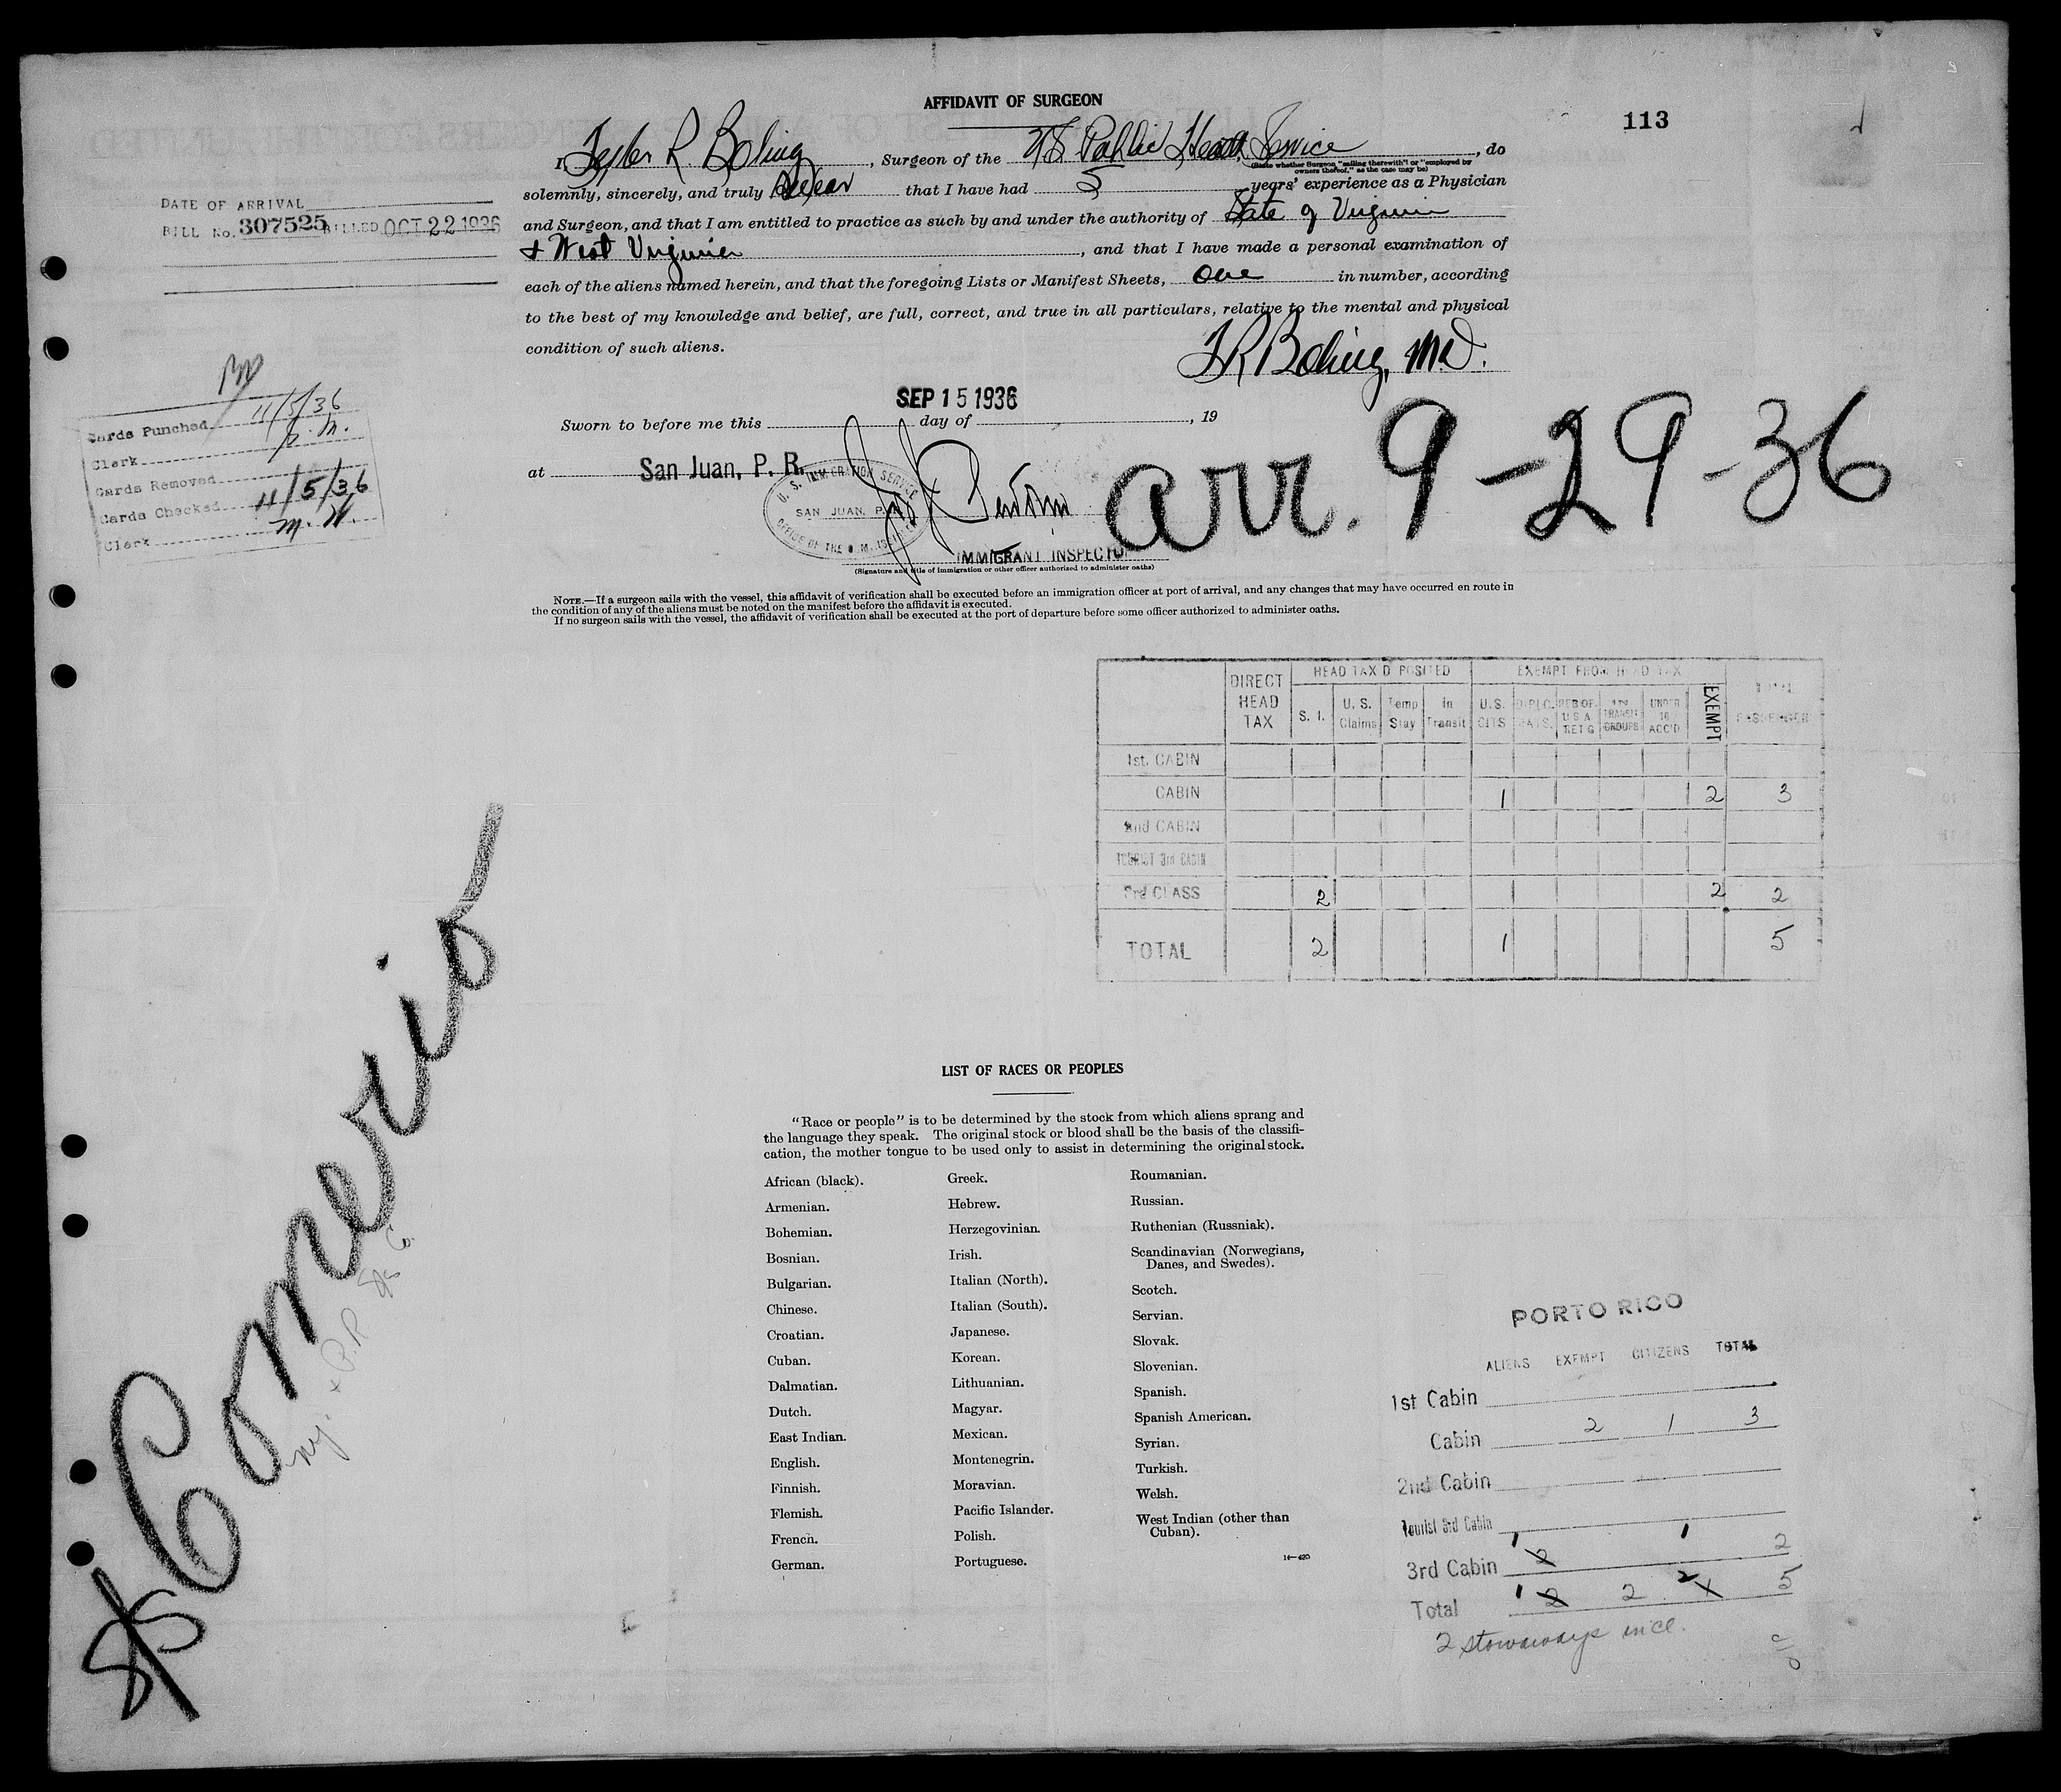 AFFIDAVIT OF SURGEON
113
I, Tyler R. Boling, Surgeon of the US Public Health Service, do
(State whether Surgeon "sailing therewith" or "employed by owners thereof," as the case may be)
solemnly, sincerely, and truly swear that I have had 5 years' experience as a Physician
and Surgeon, and that I am entitled to practice as such by and under the authority of State of Virginia
+ West Virginia, and that I have made a personal examination of
each of the aliens named herein, and that the foregoing Lists or Manifest Sheets, one in number, according
to the best of my knowledge and belief, are full, correct, and true in all particulars, relative to the mental and physical
condition of such aliens.
T R Boling, M.D.
DATE OF ARRIVAL
BILL No. 307525 BILLED OCT 22 1936
11/5/36
Cards Punched
Clerk
Cards Removed
Cards Checked 11/5/36
Clerk M. W.
SEP 15 1936
Sworn to before me this day of , 19
at San Juan, P. R.
U. S. IMMIGRATION SERVICE
SAN JUAN, P. R.
arr. 9-29-36
IMMIGRANT INSPECTOR
(Signature and title of immigration or other officer authorized to administer oaths)
NOTE.—If a surgeon sails with the vessel, this affidavit of verification shall be executed before an immigration officer at port of arrival, and any changes that may have occurred en route in
the condition of any of the aliens must be noted on the manifest before the affidavit is executed.
If no surgeon sails with the vessel, the affidavit of verification shall be executed at the port of departure before some officer authorized to administer oaths.
DIRECT HEAD TAX
HEAD TAX DEPOSITED
EXEMPT FROM HEAD TAX
TOTAL PASSENGER
S. I. U. S. Claims Temp Stay in Transit U.S. CITS DIPLO. MATS. RES OF U S A RET G TRANSIT GROUPS UNDER 16 ACC'D EXEMPT
1st. CABIN
CABIN 1 2 3
2nd CABIN
TOURIST 3rd CABIN
3rd CLASS 2 2 2
TOTAL 2 1 5
SS Comerio
NY. + P.R SS Co.
LIST OF RACES OR PEOPLES
"Race or people" is to be determined by the stock from which aliens sprang and
the language they speak. The original stock or blood shall be the basis of the classifi-
cation, the mother tongue to be used only to assist in determining the original stock.
African (black).
Armenian.
Bohemian.
Bosnian.
Bulgarian.
Chinese.
Croatian.
Cuban.
Dalmatian.
Dutch.
East Indian.
English.
Finnish.
Flemish.
French.
German.
Greek.
Hebrew.
Herzegovinian.
Irish.
Italian (North).
Italian (South).
Japanese.
Korean.
Lithuanian.
Magyar.
Mexican.
Montenegrin.
Moravian.
Pacific Islander.
Polish.
Portuguese.
Roumanian.
Russian.
Ruthenian (Russniak).
Scandinavian (Norwegians,
Danes, and Swedes).
Scotch.
Servian.
Slovak.
Slovenian.
Spanish.
Spanish American.
Syrian.
Turkish.
Welsh.
West Indian (other than
Cuban).
14—420
PORTO RICO
ALIENS EXEMPT CITIZENS TOTAL
1st Cabin
Cabin 2 1 3
2nd Cabin
Tourist 3rd Cabin
3rd Cabin 1 2 1 2
Total 1 2 2 2 1 5
2 stowaways incl.